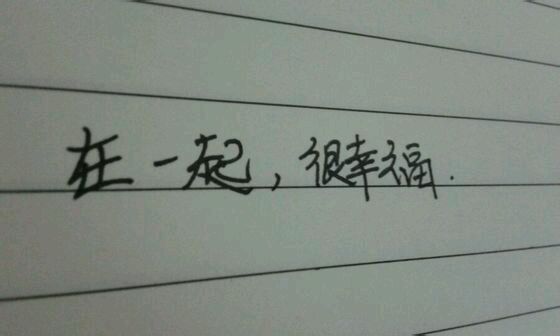 在一起，很幸福.